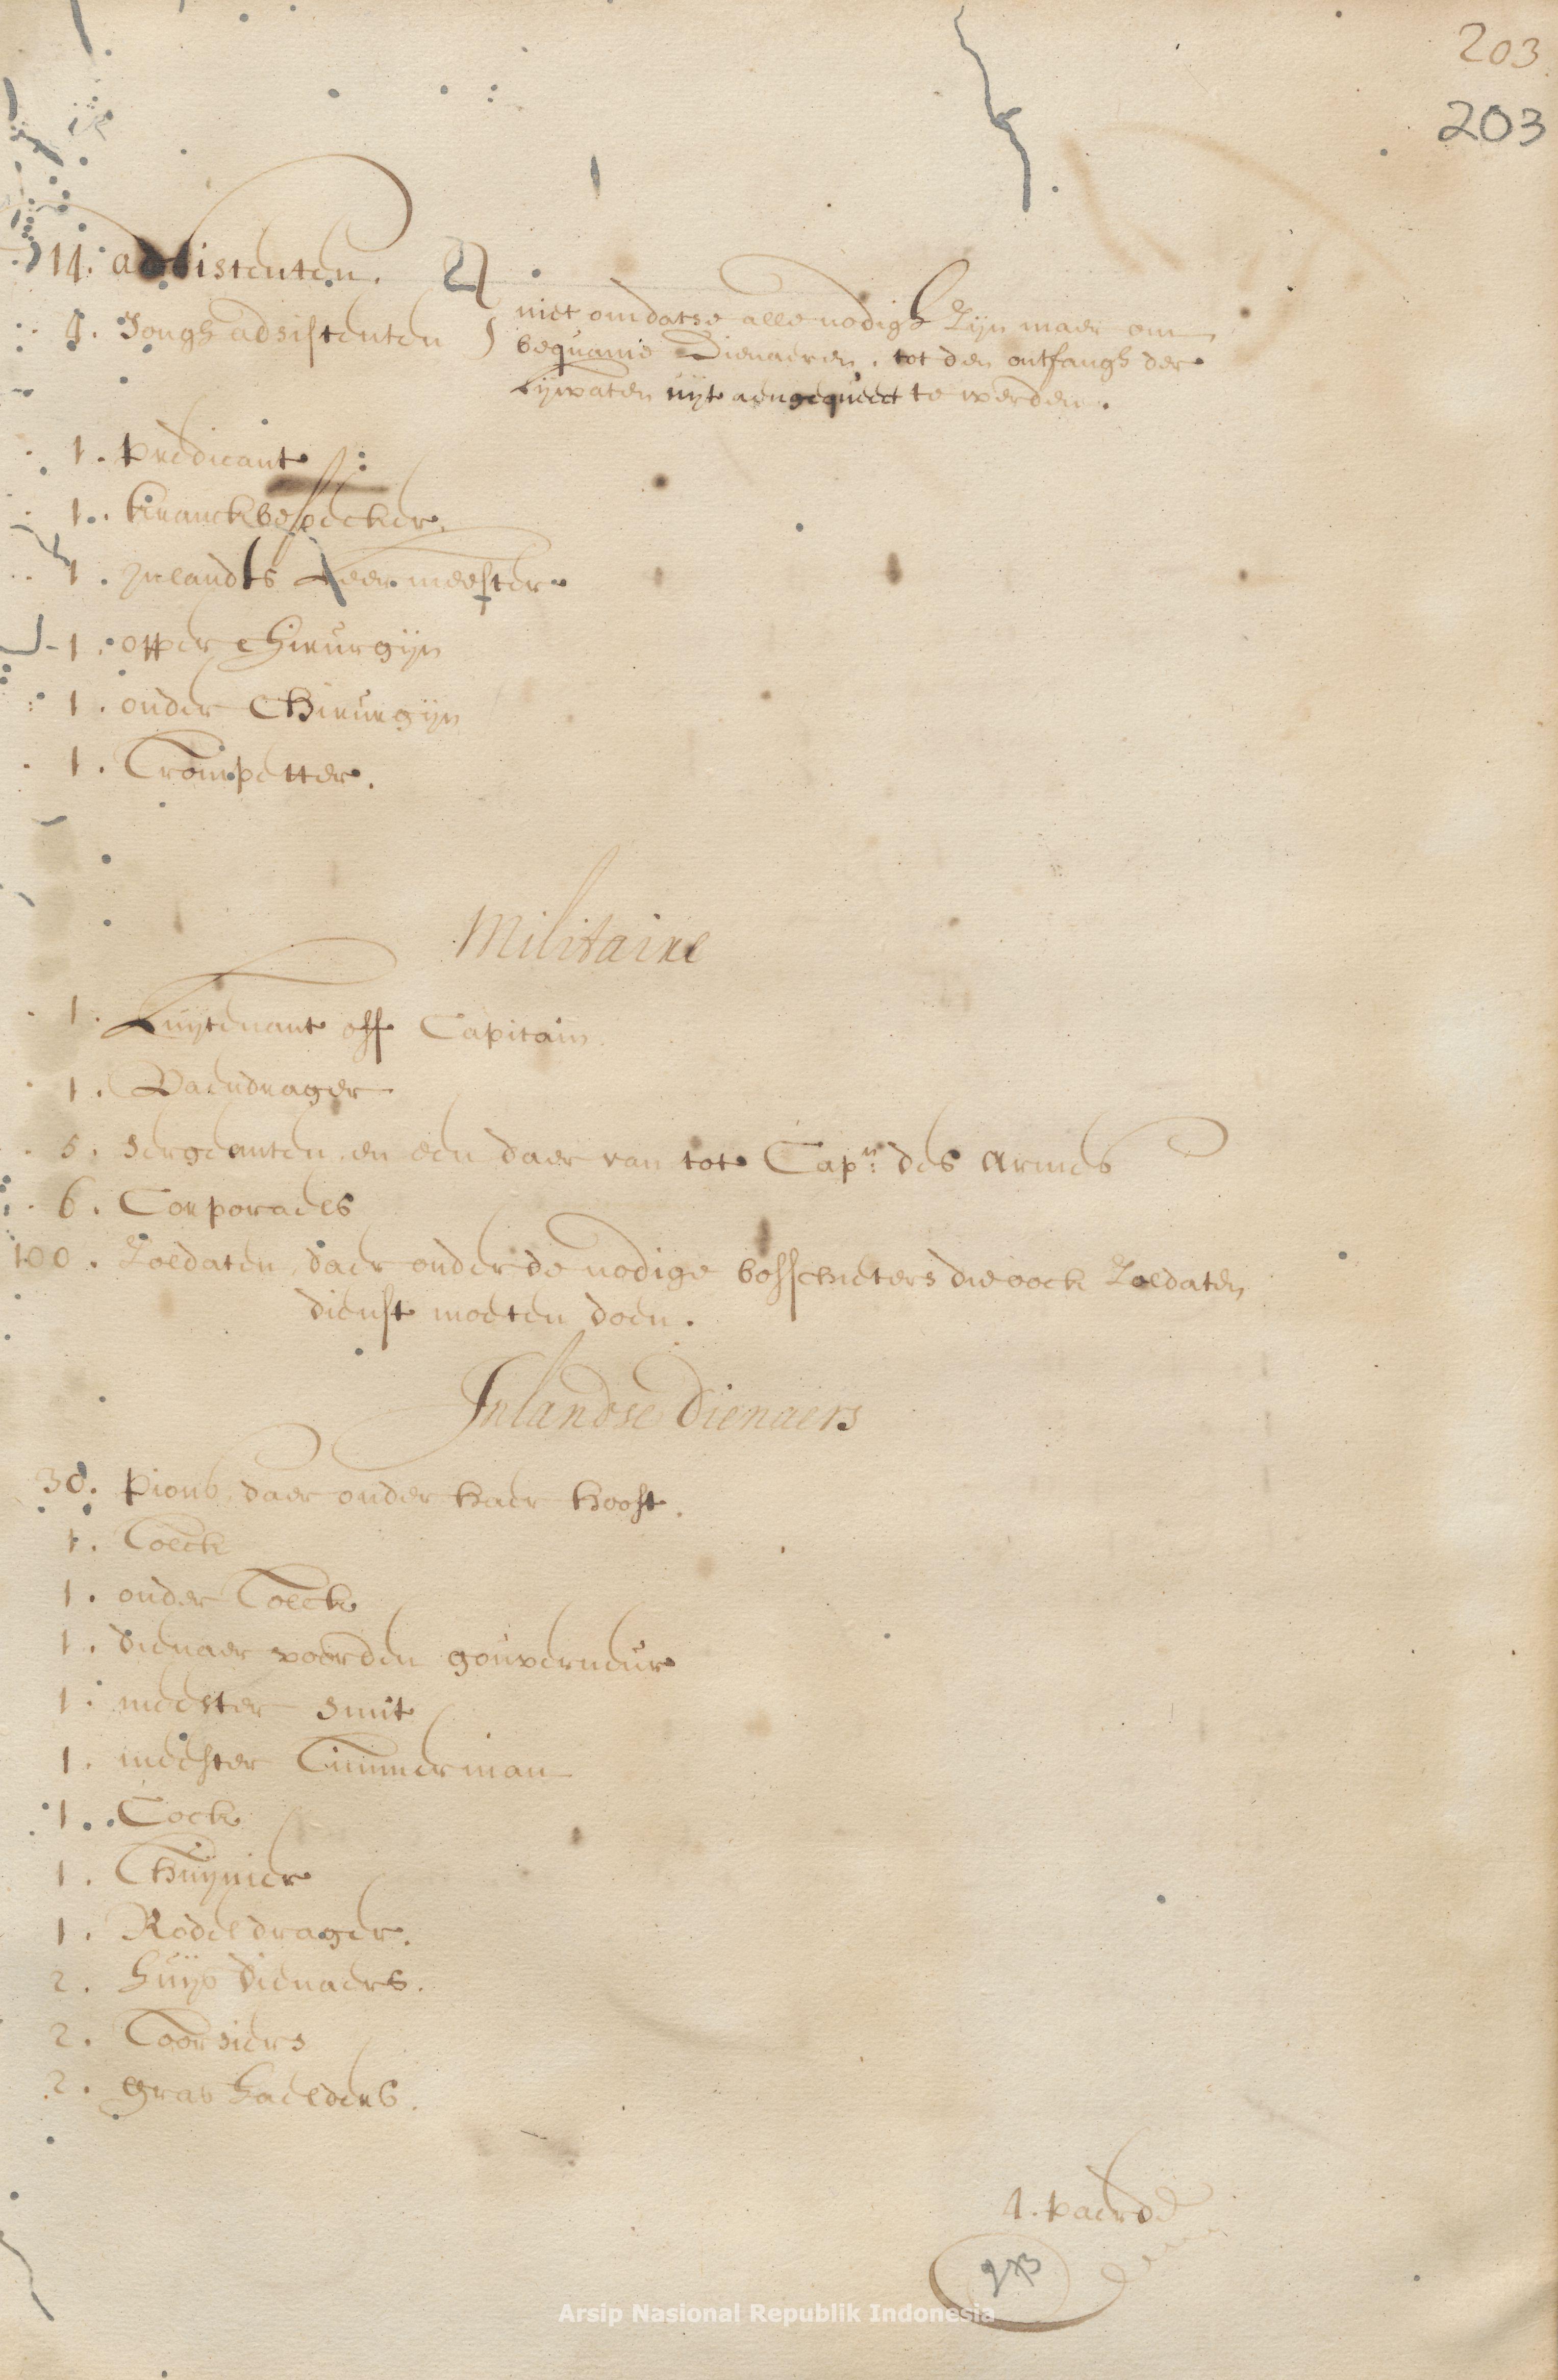 203
203
14. adsistenten.
4. Jongh adsistenten
niet omdatse alle nodigh zijn maer om
bequame Dienaeren, tot den ontfangh der
Lijwaten uijt aengequeect te werden.
1. predicant
1. kranckbesoecker
1. Inlandts Leermeester
1. opper Chirurgijn
1. onder Chirurgijn
1. Trompetter.
Militaire
1. Luijtenant off Capitain
1. Vaendrager
5. sergeanten, en een daer van tot Capn: des Armes
6. Corporaels
100. Soldaten, daer onder de nodige bosschieters die oock Soldaten
dienst moeten doen.
Inlandse Dienaers
30. Pions, daer onder haer hooft.
1. Tolck
1. onder Tolck
1. dienaer voorden gouverneur
1. meester smit
1. meester Timmerman
1. Cock
1. Thuijnier
1. Rodeldrager.
2. huijs dienaers.
2. Toorsiers
2. Gras haelders.
4. paerde
Arsip Nasional Republik Indonesia